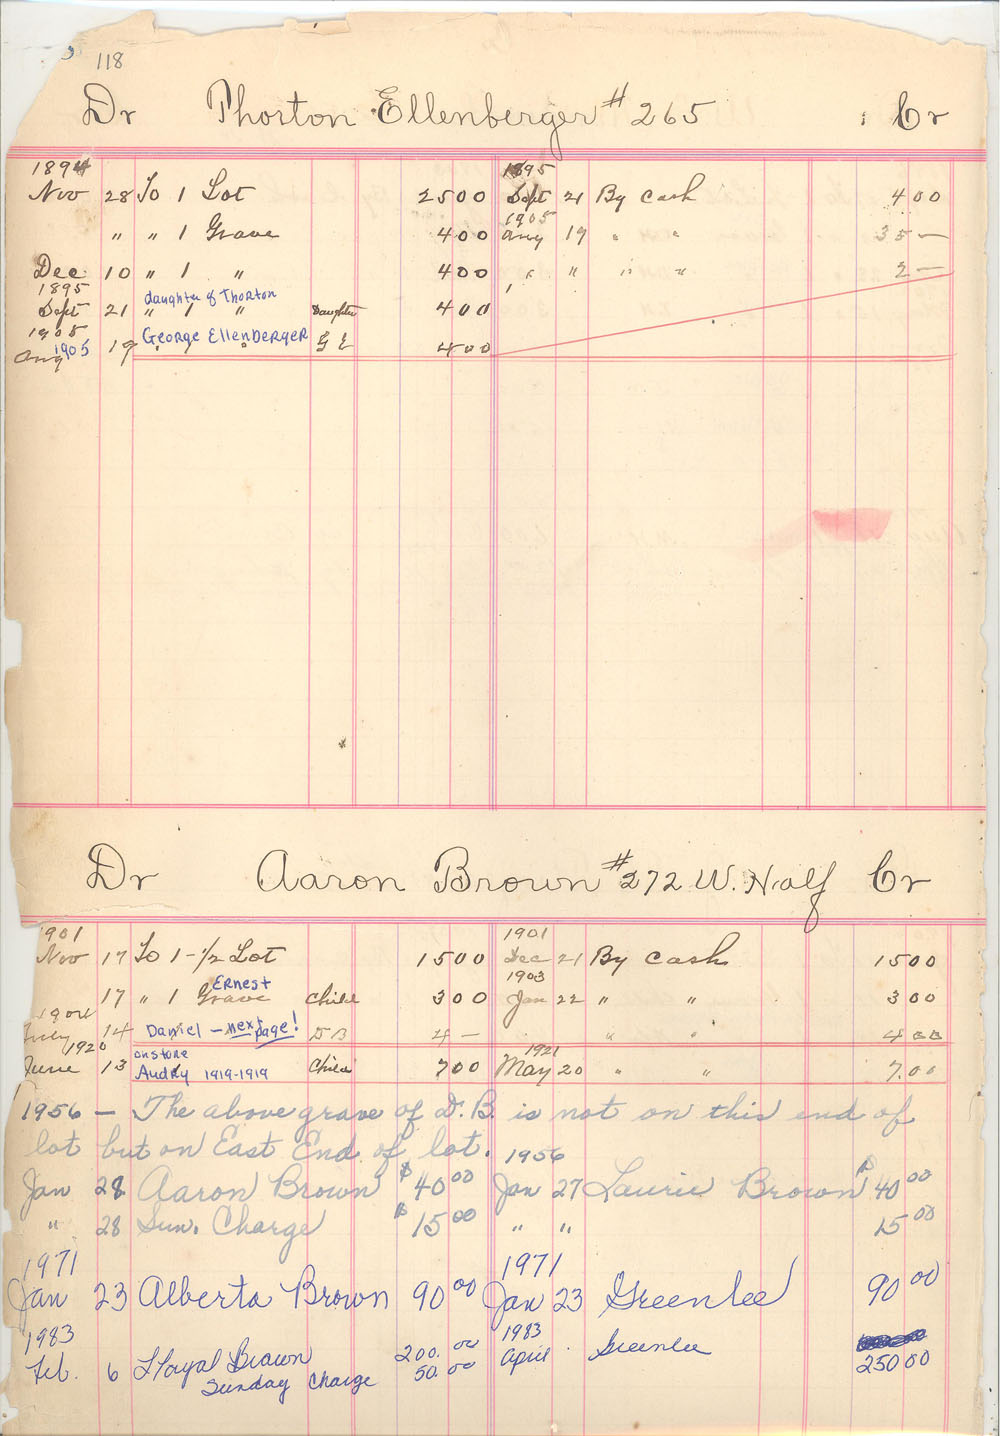 118
Dr Thorton Ellenberger #265 Cr
1894 1895
Nov 28 To 1 Lot 2500 Sept 21 By Cash 400
1905
" " 1 Grave 400 Aug 19 " " 35 —
Dec 10 " 1 " 400 " " " " 2 —
1895 daughter of Thorton
Sept 21 " 1 " Daughter 400
1905 George Ellenberger
Aug 1905 19 " " " G E 400
Dr Aaron Brown #272 W. Half Cr
1901 1901
Nov 17 To 1-1/2 Lot 1500 Dec 21 By Cash 1500
Ernest 1903
17 " 1 Grave Child 300 Jan 22 " " 300
1904
July 14 Daniel - next page! D B 4 — " " 400
1920 onstone 1921
June 13 Audry 1919-1919 Child 700 May 20 " " 7.00
1956 — The above grave of D. B. is not on this end of
lot but on East End of lot. 1956
Jan 28 Aaron Brown $40 00 Jan 27 Laurie Brown $40 00
" 28 Sun. Charge $15 00 " " 15 00
1971 1971
Jan 23 Alberta Brown 90 00 Jan 23 Greenlee 90 00
1983 1983
Feb. 6 Lloyal Brown 200. 00 April Greenlee
Sunday Charge 50. 00 250 00